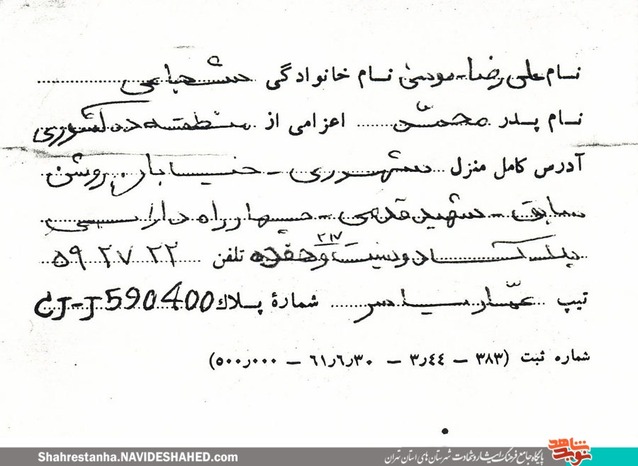 نام علی رضا - موسی نام خانوادگی شعاعی
نام پدر محمد اعزامی از منطقه ده کشوری
آدرس کامل منزل شهرری - خیابان روشن
سابق - شهید قدمی - چهار راه دارائی
پلاک دویست و هفده ۲۱۷ تلفن ۵۹۲۷۲۲
تیپ عمّار یاسر شماره پلاک CJ-J 590400
شماره ثبت (۳۸۳ – ۳ر۴۴ – ۶۱ر۶ر۳۰ – ۵۰۰ر۰۰۰)
Shahrestanha.NAVIDESHAHED.com
پایگاه جامع فرهنگ ایثار و شهادت شهرستان های استان تهران
نوید شاهد